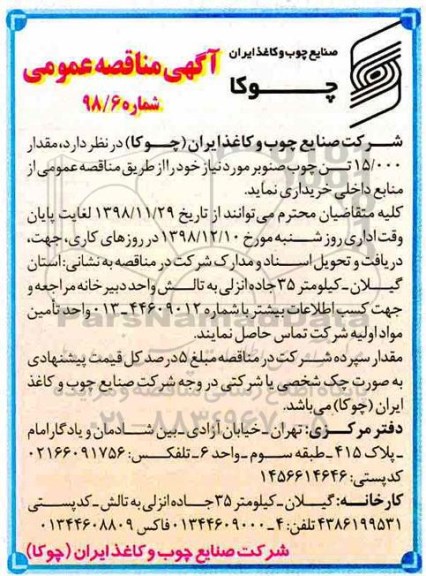 صنایع چوب و کاغذ ایران
چوکا
آگهی مناقصه عمومی
شماره ۹۸/۶
شرکت صنایع چوب و کاغذ ایران (چوکا) در نظر دارد، مقدار
۱۵/۰۰۰ تن چوب صنوبر مورد نیاز خود را از طریق مناقصه عمومی از
منابع داخلی خریداری نماید.
کلیه متقاضیان محترم می‌توانند از تاریخ ۱۳۹۸/۱۱/۲۹ لغایت پایان
وقت اداری روز شنبه مورخ ۱۳۹۸/۱۲/۱۰ در روزهای کاری، جهت،
دریافت و تحویل اسناد و مدارک شرکت در مناقصه به نشانی: استان
گیلان - کیلومتر ۳۵ جاده انزلی به تالش واحد دبیرخانه مراجعه و
جهت کسب اطلاعات بیشتر با شماره ۴۴۶۰۹۰۱۲-۰۱۳ واحد تأمین
مواد اولیه شرکت تماس حاصل نمایند.
مقدار سپرده شرکت در مناقصه مبلغ ۵ درصد کل قیمت پیشنهادی
به صورت چک شخصی یا شرکتی در وجه شرکت صنایع چوب و کاغذ
ایران (چوکا) می‌باشد.
دفتر مرکزی: تهران - خیابان آزادی - بین شادمان و یادگار امام
- پلاک ۴۱۵ - طبقه سوم - واحد ۶ - تلفکس: ۰۲۱۶۶۰۹۱۷۵۶
کدپستی: ۱۴۵۶۶۱۴۶۴۶
کارخانه: گیلان - کیلومتر ۳۵ جاده انزلی به تالش - کدپستی
۴۳۸۶۱۹۹۵۳۱ تلفن: ۴-۰۱۳۴۴۶۰۹۰۰۰ فاکس ۰۱۳۴۴۶۰۸۸۰۹
شرکت صنایع چوب و کاغذ ایران (چوکا)
ParsNamadData
۰۲۱-۸۸۳۴۹۶۷۰-۵